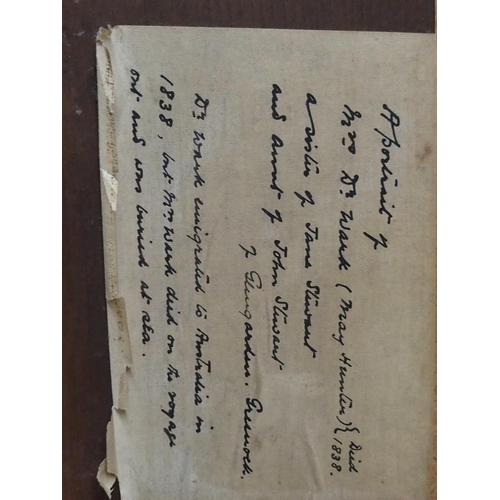 A portrait of
Mrs Dr Wark (May Hunter) { Died 1838.
a sister of Jane Stewart
and Aunt of John Stewart
of Glengarden. Greenock.
Dr Wark emigrated to Australia in
1838, but Mrs Wark died on the voyage
out and was buried at sea.